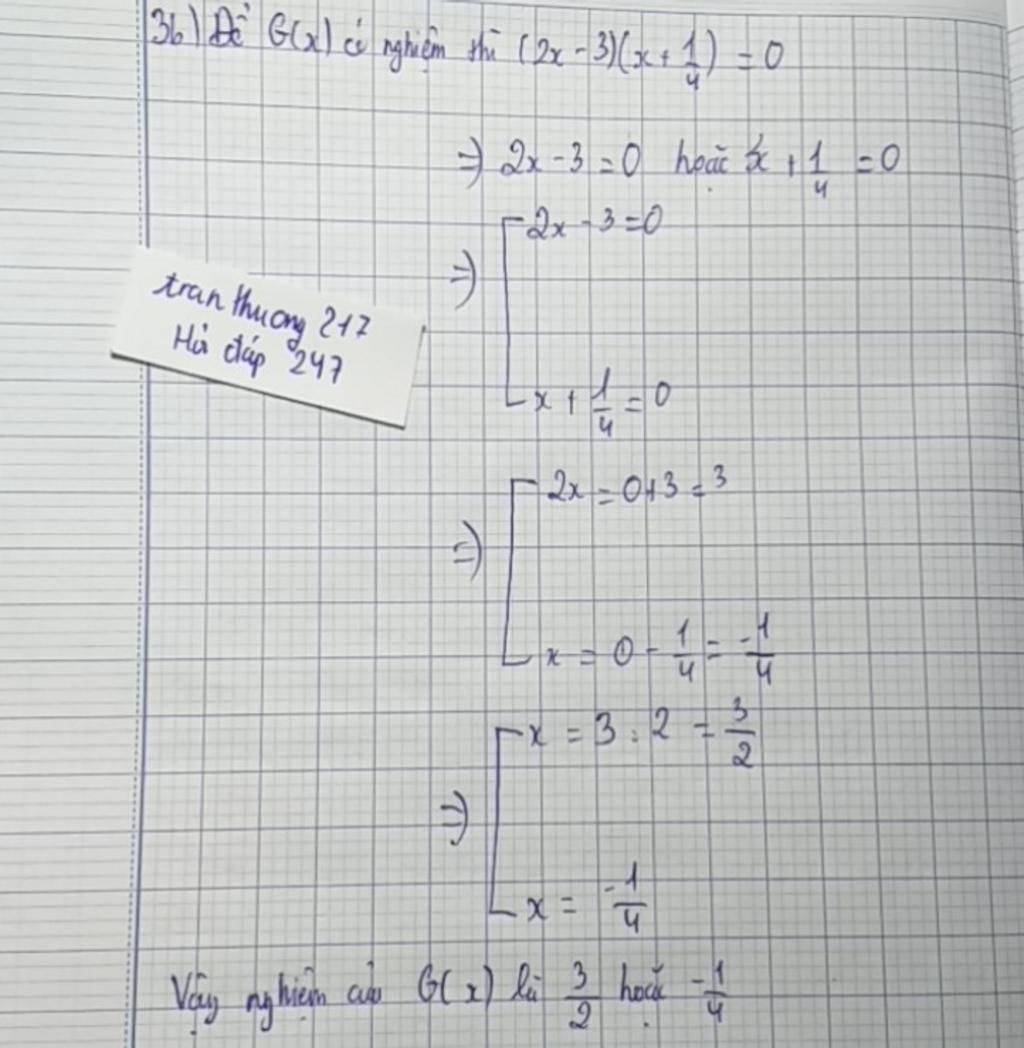 3b) Để G(x) có nghiệm thì (2x - 3)(x + 1/4) = 0
=> 2x - 3 = 0 hoặc x + 1/4 = 0
=> [ 2x - 3 = 0
x + 1/4 = 0
tran thuong 217
Hỏi đáp 247
=> [ 2x = 0 + 3 = 3
x = 0 - 1/4 = -1/4
=> [ x = 3 : 2 = 3/2
x = -1/4
Vậy nghiệm của G(x) là 3/2 hoặc -1/4